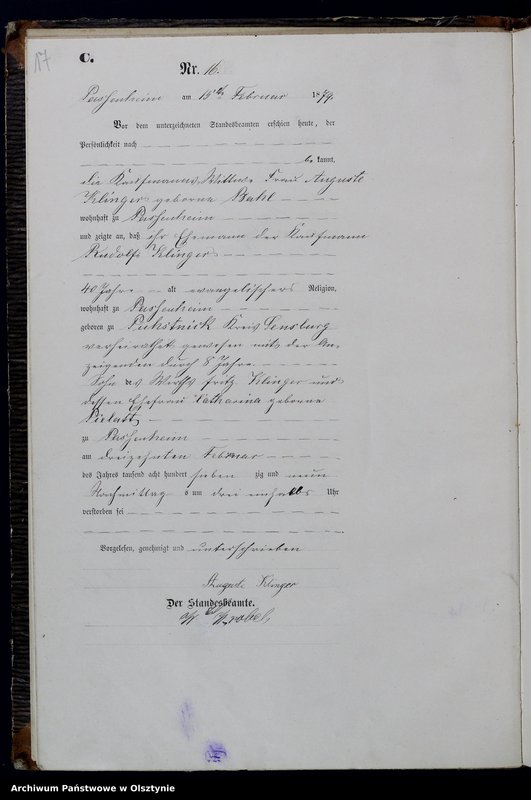 17
C.
Nr. 16.
Passenheim am 15ten Februar 1879.
Vor dem unterzeichneten Standesbeamten erschien heute, der
Persönlichkeit nach
be kannt,
die Kaufmanns Wittwe Frau Auguste
Klinger geborne Bahl
wohnhaft zu Passenheim
und zeigte an, daß ihr Ehemann der Kaufmann
Rudolf Klinger
40 Jahre alt evangelischer Religion,
wohnhaft zu Passenheim
geboren zu Kreis Sensburg
verheirathet gewesen mit der An-
zeigenden durch 8 Jahre
Sohn des Wirths Fritz Klinger und
dessen Ehefrau Catharina geborne
zu Passenheim
am dreizehnten Februar
des Jahres tausend acht hundert sieben zig und neun
Nachmittag s um drei einhalb Uhr
verstorben sei
Vorgelesen, genehmigt und unterschrieben
Auguste Klinger
Der Standesbeamte.
Archiwum Państwowe w Olsztynie